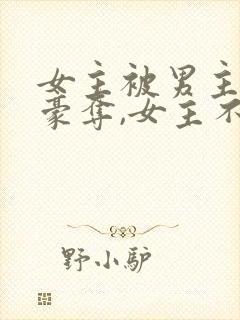 女主被男主
豪夺,女主不
野小驴